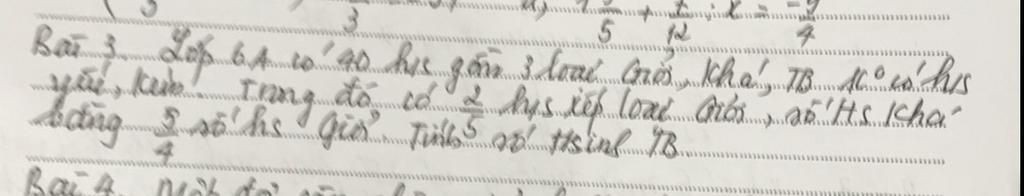 3 3 5 + 7/12 : x = -9/4
Bài 3. Lớp 6A có 40 hs gồm 3 loại Giỏi, Khá, TB Ko có hs
yếu, kém. Trong đó có 2/5 hs xếp loại Giỏi, số Hs Khá
bằng 5/4 số hs giỏi. Tính số Hsinh TB
Bài 4. Một